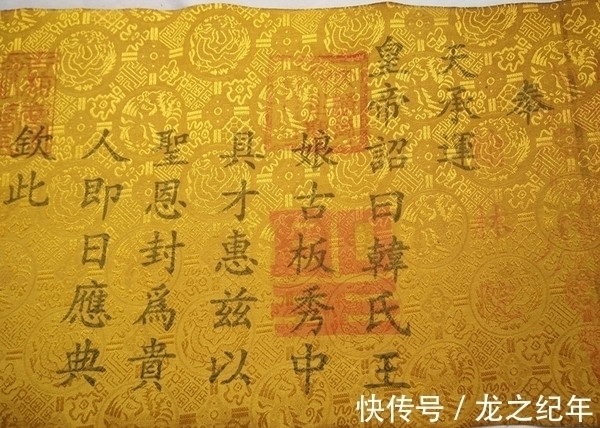 奉
天承運
皇帝詔曰韓氏王
娘古板秀中
具才惠茲以
聖恩封為貴
人即日應典
欽此
快传号/龙之纪年